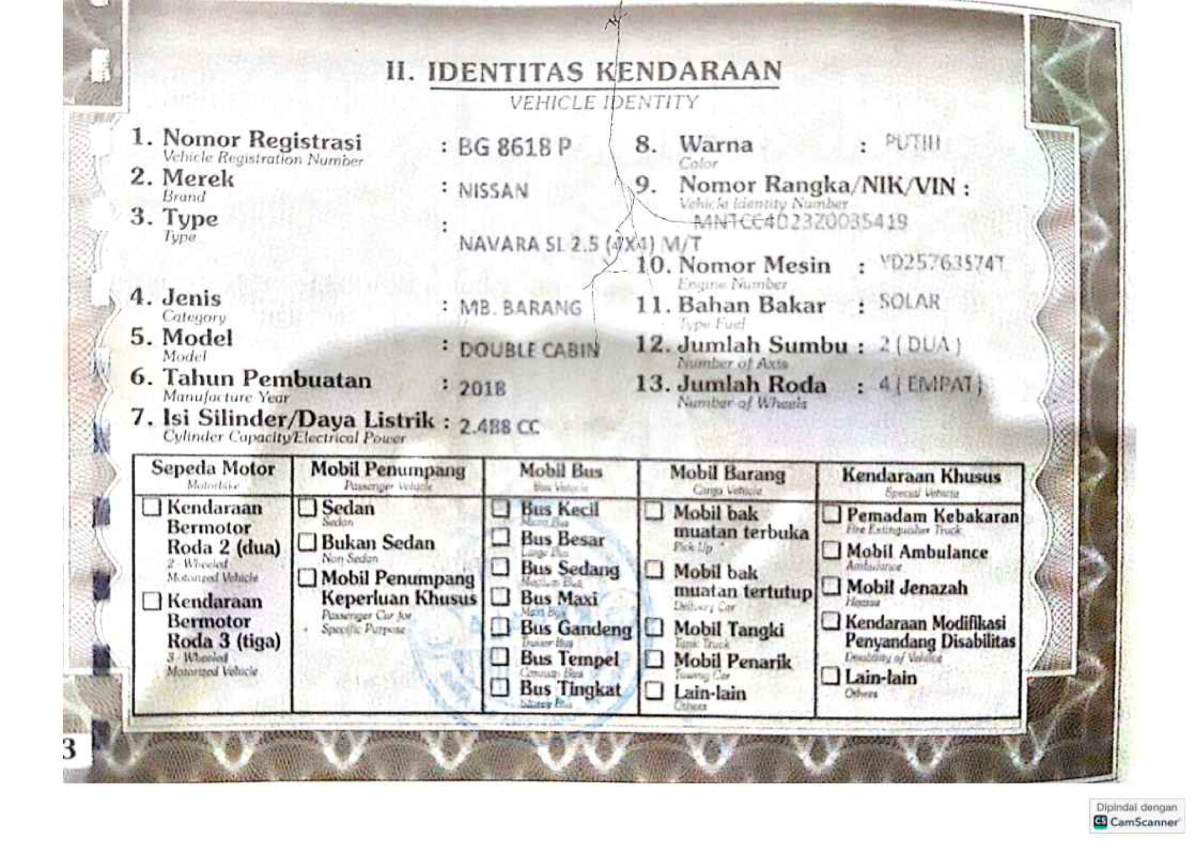 II. IDENTITAS KENDARAAN
VEHICLE IDENTITY
1. Nomor Registrasi : BG 8618 P
Vehicle Registration Number
2. Merek : NISSAN
Brand
3. Type :
Type
NAVARA SL 2.5 (4X4) M/T
4. Jenis : MB. BARANG
Category
5. Model : DOUBLE CABIN
Model
6. Tahun Pembuatan : 2018
Manufacture Year
7. Isi Silinder/Daya Listrik : 2.488 CC
Cylinder Capacity/Electrical Power
8. Warna : PUTIH
Color
9. Nomor Rangka/NIK/VIN :
Vehicle Identity Number
MNTCC4D23Z0035419
10. Nomor Mesin : YD25763574T
Engine Number
11. Bahan Bakar : SOLAR
Type Fuel
12. Jumlah Sumbu : 2 ( DUA )
Number of Axis
13. Jumlah Roda : 4 ( EMPAT )
Number of Wheels
Sepeda Motor
Motorbike
Kendaraan
Bermotor
Roda 2 (dua)
2 - Wheeled
Motorized Vehicle
Kendaraan
Bermotor
Roda 3 (tiga)
3 - Wheeled
Motorized Vehicle
Mobil Penumpang
Passenger Vehicle
Sedan
Sedan
Bukan Sedan
Non Sedan
Mobil Penumpang
Keperluan Khusus
Passenger Car for
Specific Purpose
Mobil Bus
Bus Vehicle
Bus Kecil
Micro Bus
Bus Besar
Large Bus
Bus Sedang
Medium Bus
Bus Maxi
Maxi Bus
Bus Gandeng
Bus
Bus Tempel
Bus
Bus Tingkat
Bus
Mobil Barang
Cargo Vehicle
Mobil bak
muatan terbuka
Pick Up
Mobil bak
muatan tertutup
Delivery Car
Mobil Tangki
Tank Truck
Mobil Penarik
Towing Car
Lain-lain
Others
Kendaraan Khusus
Special Vehicle
Pemadam Kebakaran
Fire Extinguisher Truck
Mobil Ambulance
Ambulance
Mobil Jenazah
Hearse
Kendaraan Modifikasi
Penyandang Disabilitas
Disability of Vehicle
Lain-lain
Others
3
Dipindai dengan
CS CamScanner